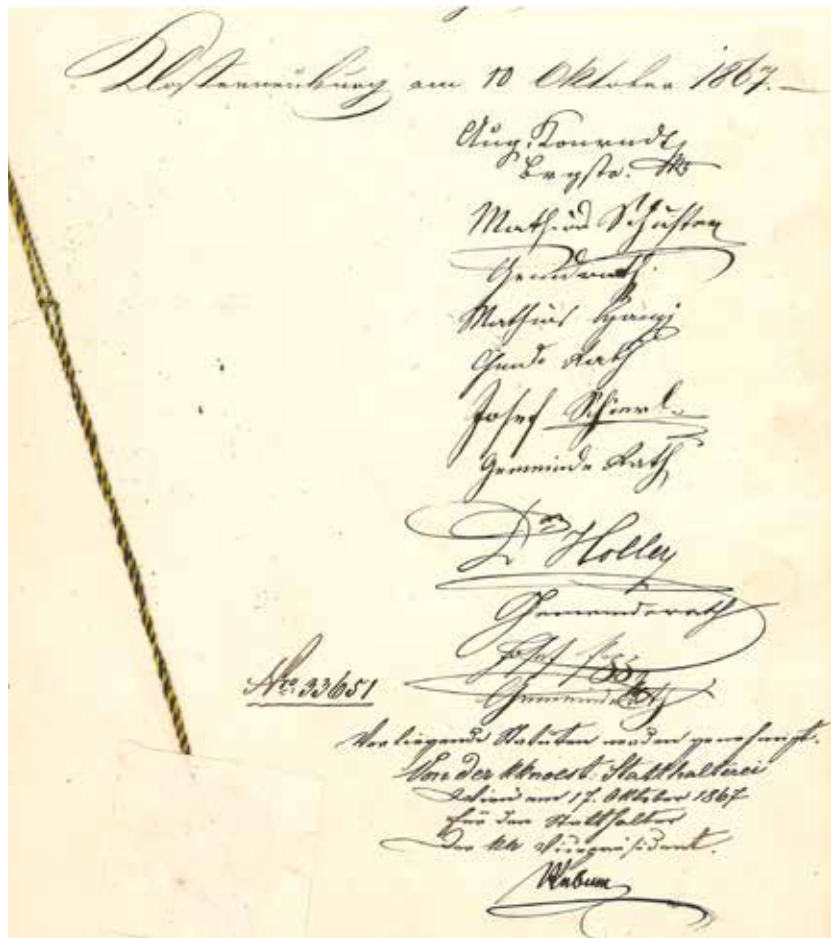 Klosterneuburg am 10 Oktober 1867.
Aug. Konradt
Mathias Schuster
Gemdrath.
Mathias
Gmde Rath
Josef
Gemeinde Rath
Dr Holley
Gemeinderath
Josef
Gemeinderath
Nro. 33651
Vorliegende Statuten werden genehmigt.
Von der kknoest. Statthalterei
Wien am 17. Oktober 1867
Für den Statthalter
Der kk Vicepräsident.